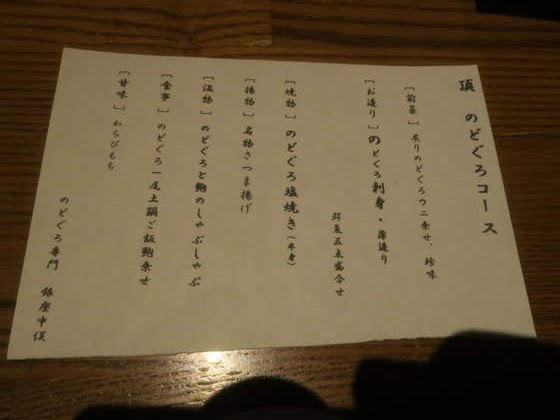 頂 のどぐろコース
[前菜] 炙りのどぐろウニ乗せ、珍味
[お造り] のどぐろ刺身・薄造り
鮮魚五点盛合せ
[焼物] のどぐろ塩焼き(半身)
[揚物] 名物さつま揚げ
[温物] のどぐろと鮑のしゃぶしゃぶ
[食事] のどぐろ一尾土鍋ご飯鮑乗せ
[甘味] わらびもち
のどぐろ専門 銀座中俣